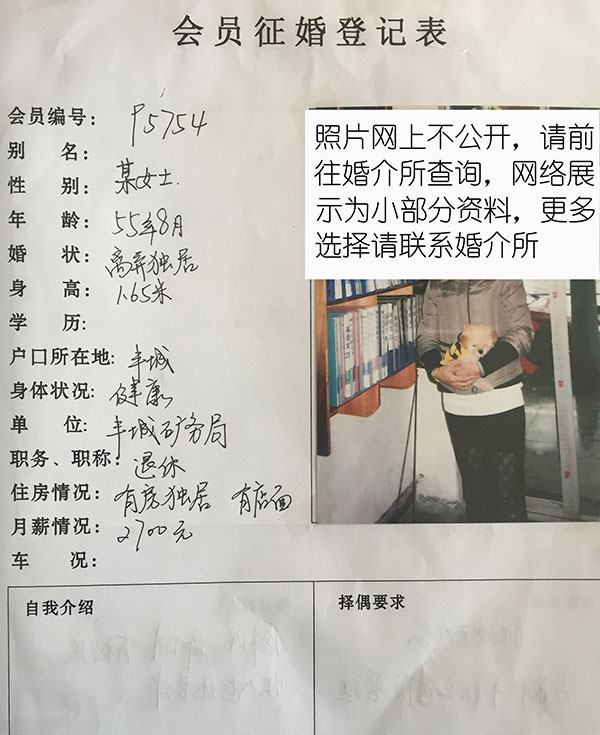 会员征婚登记表
会员编号： P5754
别 名：
性 别： 某女士.
年 龄： 55年8月
婚 状： 离异独居
身 高： 1.65米
学 历:
户口所在地: 丰城
身体状况: 健康
单 位: 丰城矿务局
职务、职称： 退休
住房情况： 有房独居 有店面
月薪情况： 2700元
车 况：
照片网上不公开，请前
往婚介所查询，网络展
示为小部分资料，更多
选择请联系婚介所
自我介绍
择偶要求